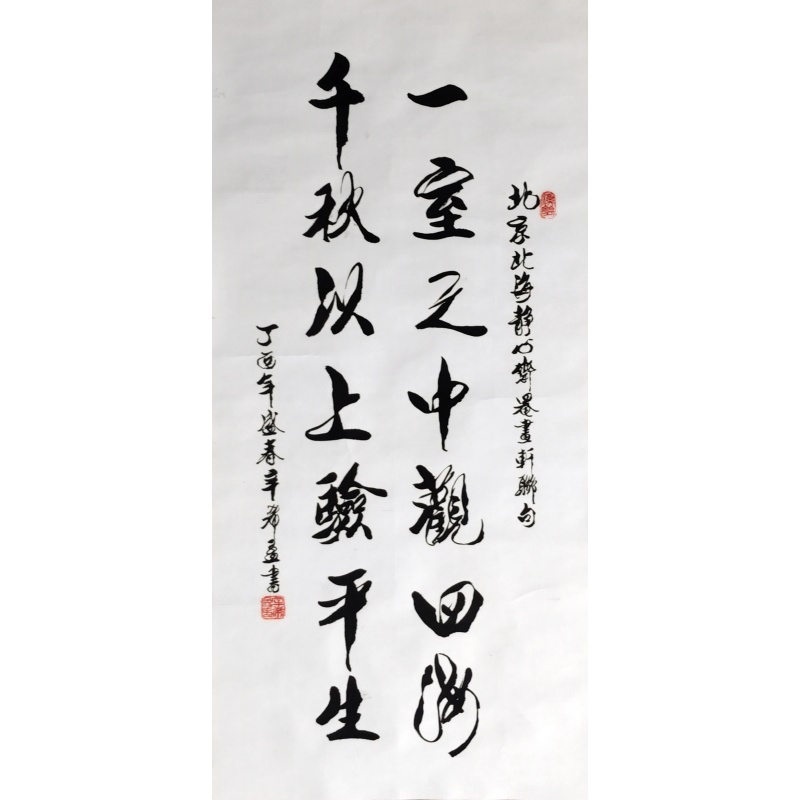 北京北海静心齋罨畫軒聯句
一室之中觀四海
千秋以上驗平生
丁酉年盛春辛希孟書